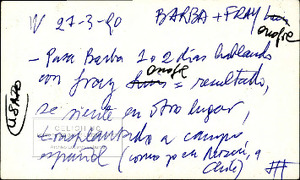 IV 27-3-90 BARBA + FRAY
onofre
- Para Barba 1 o 2 días hablando
con fray onofre = resultado,
se siente en otro lugar,
transplantado a campo
español (como yo en
USADO